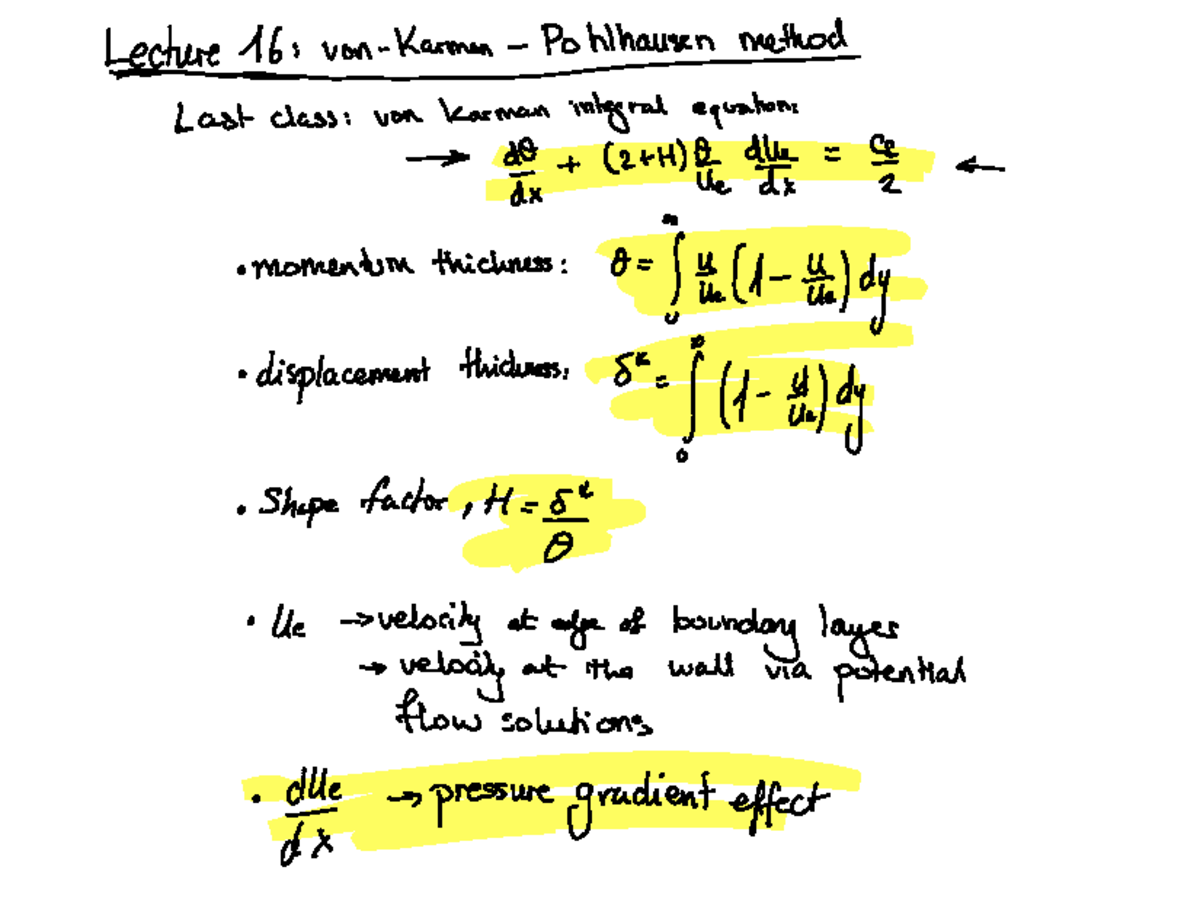 Lecture 16: von-Karman - Pohlhausen method
Last class: von Karman integral equation:
→ dθ/dx + (2+H) θ/Ue dUe/dx = Cf/2 ←
• momentum thickness: θ = ∫₀^∞ u/Ue (1 - u/Ue) dy
• displacement thickness: δ* = ∫₀^∞ (1 - u/Ue) dy
• Shape factor, H = δ*/θ
• Ue → velocity at edge of boundary layer
→ velocity at the wall via potential
flow solutions
• dUe/dx → pressure gradient effect